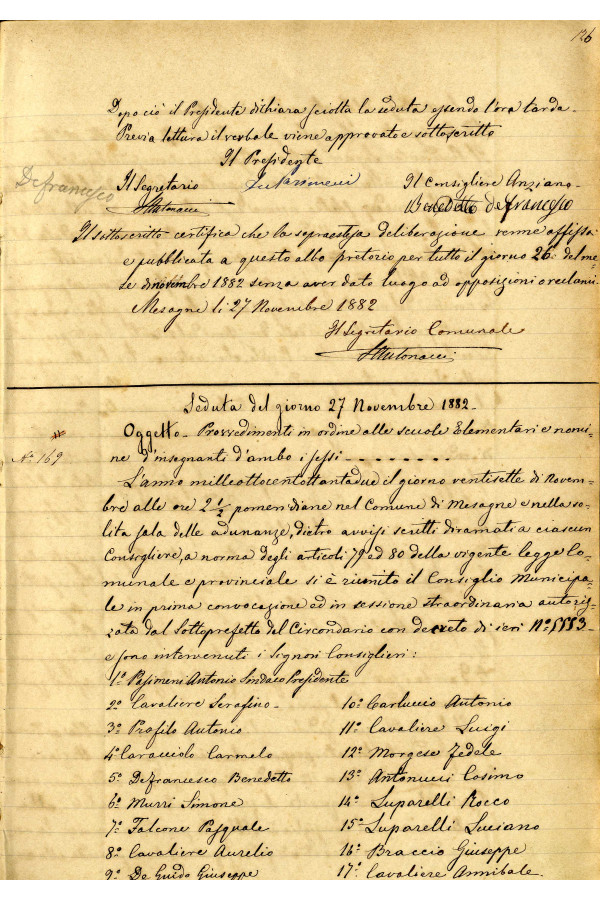 126
Dopo ciò il Presidente dichiara sciolta la seduta essendo l'ora tarda.
Previa lettura il verbale viene approvato e sottoscritto
Il Presidente
Defrancesco
Il Segretario Il Consigliere Anziano
Antonucci Benedetto defrancesco
Il sottoscritto certifica che la sopraestesa deliberazione venne affissa
e pubblicata a questo albo pretorio per tutto il giorno 26 del me
se di novembre 1882 senza aver dato luogo ad opposizioni o reclami.
Mesagne li 27 Novembre 1882
Il Segretario Comunale
Antonucci
Seduta del giorno 27 Novembre 1882.
Oggetto. Provvedimenti in ordine alle scuole Elementari e nomi
N.° 169
ne d'insegnanti d'ambo i sessi
L'anno milleottocentottantadue il giorno ventisette di Novem
bre alle ore 2 1/2 pomeridiane nel Comune di Mesagne e nella so
lita sala delle adunanze, dietro avvisi scritti diramati a ciascun
Consigliere, a norma degli articoli 79 ed 80 della vigente legge Co
munale e provinciale si è riunito il Consiglio Municipa
le in prima convocazione ed in sessione straordinaria autoriz
zata dal Sottoprefetto del Circondario con decreto di ieri N° 5553
e sono intervenuti i Signori Consiglieri:
1° Pasimeni Antonio Sindaco Presidente
2° Cavaliere Serafino
3° Profilo Antonio
4° Caracciolo Carmelo
5° Defrancesco Benedetto
6° Murri Simone
7° Falcone Pasquale
8° Cavaliere Aurelio
9° De Guido Giuseppe
10° Carluccio Antonio
11° Cavaliere Luigi
12° Morgese Fedele
13° Antonucci Cosimo
14° Luparelli Rocco
15° Luparelli Luciano
16° Braccio Giuseppe
17° Cavaliere Annibale.